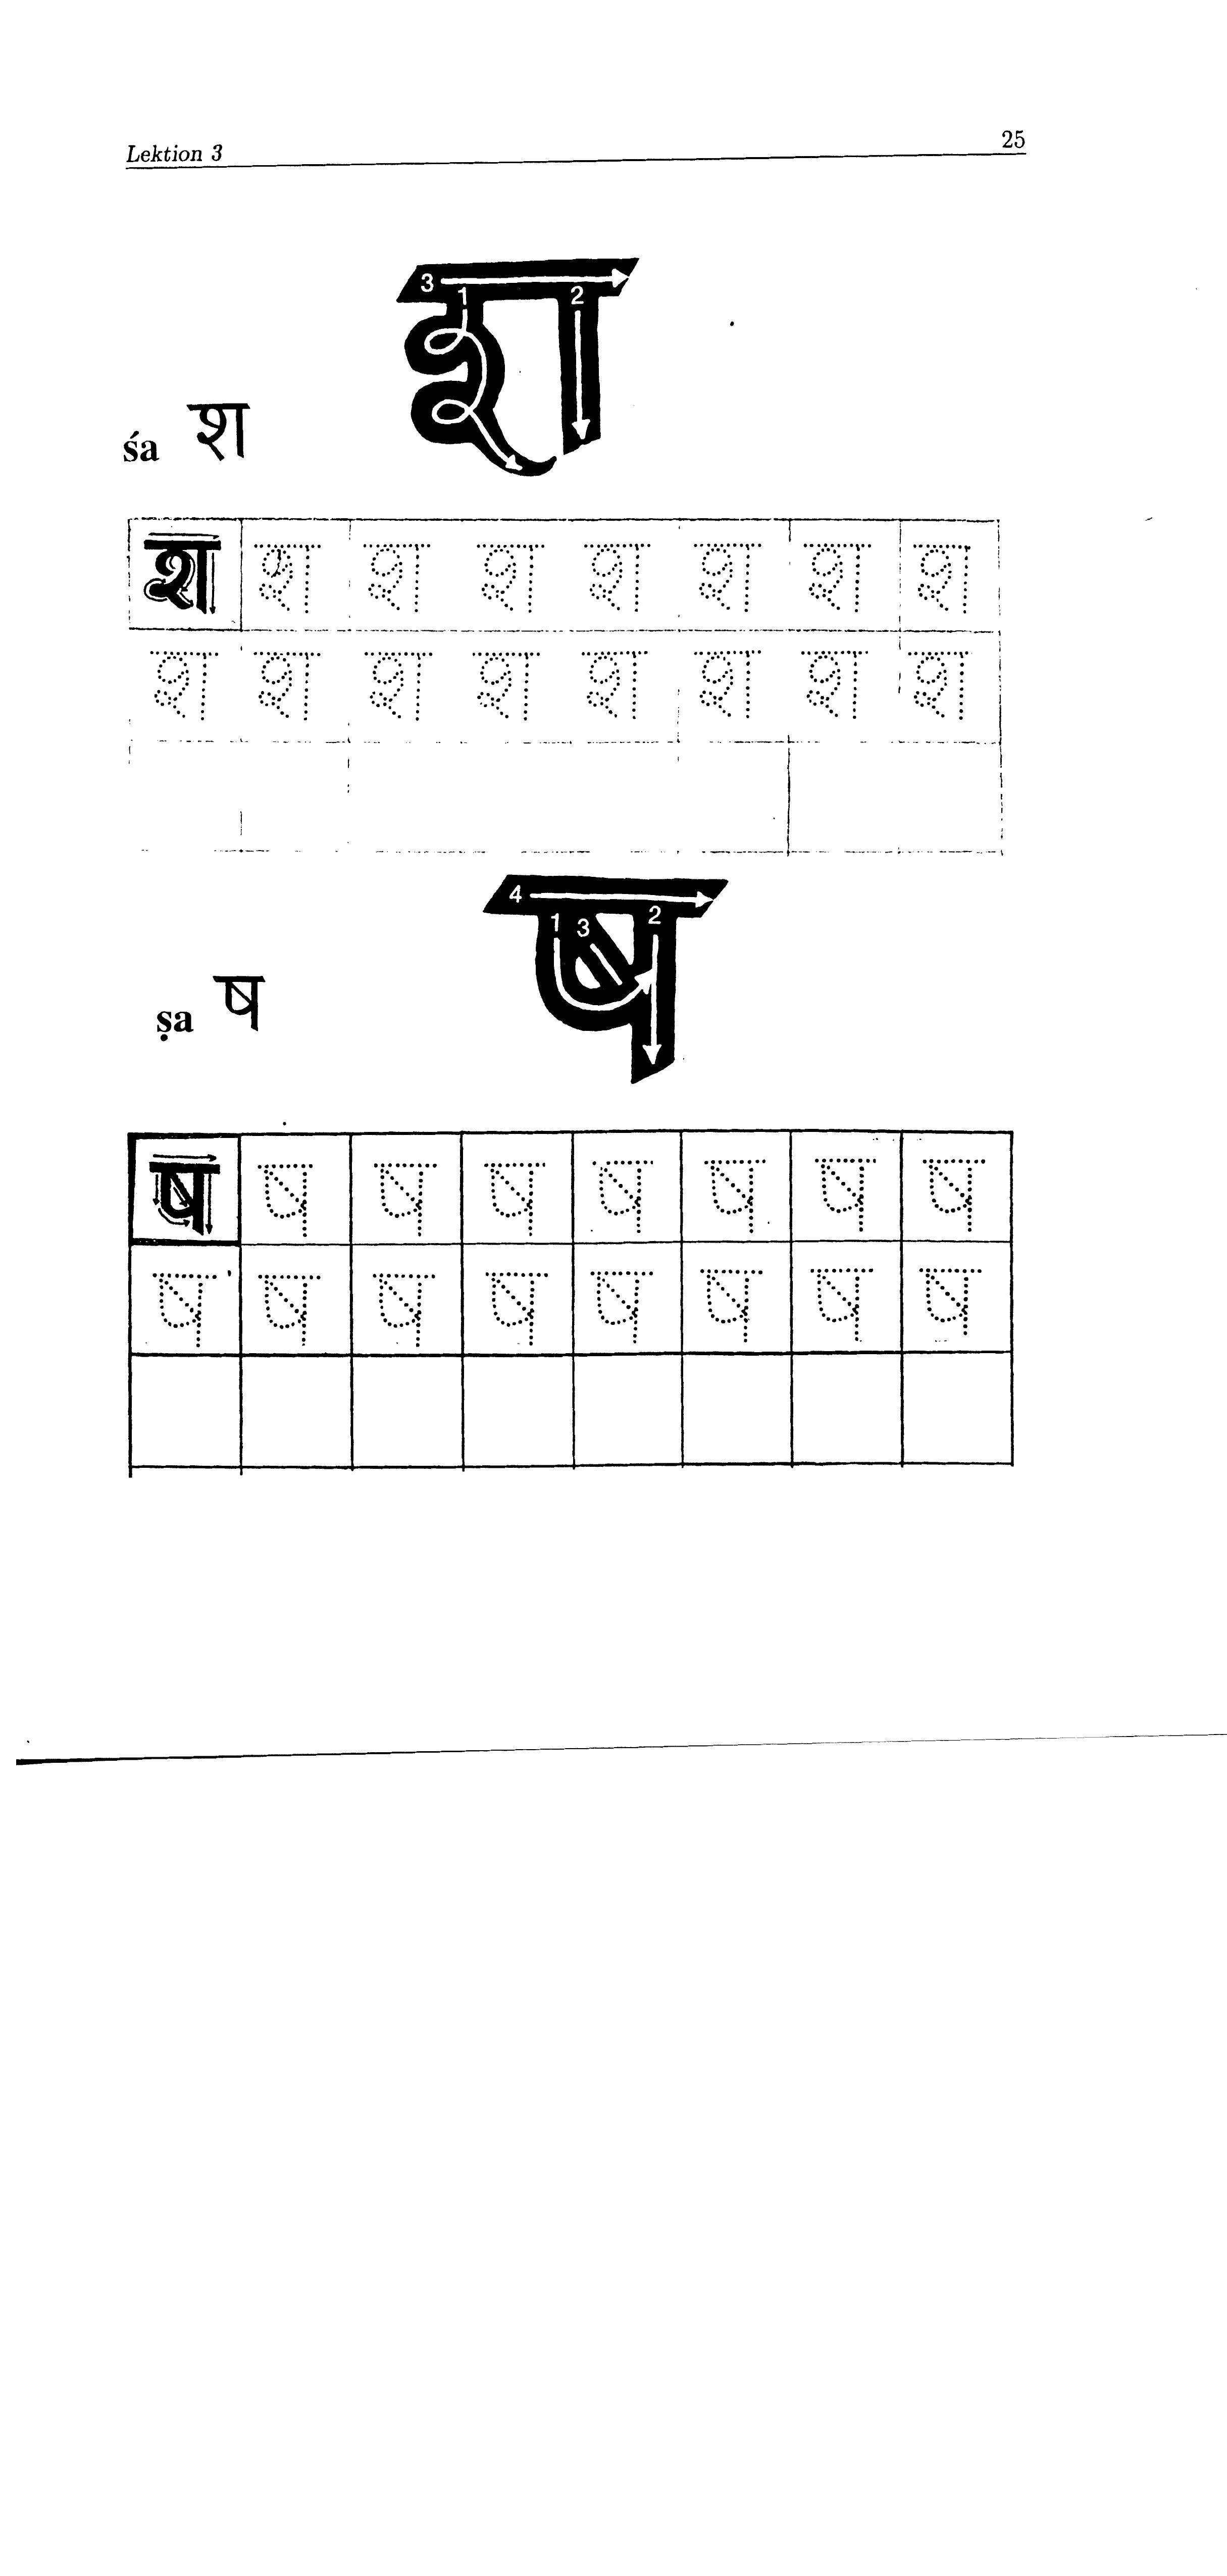 Lektion 3 25
3 1 2
śa श
श श श श श श श श
श श श श श श श श
4 1 3 2
ṣa ष
ष ष ष ष ष ष ष ष
ष ष ष ष ष ष ष ष